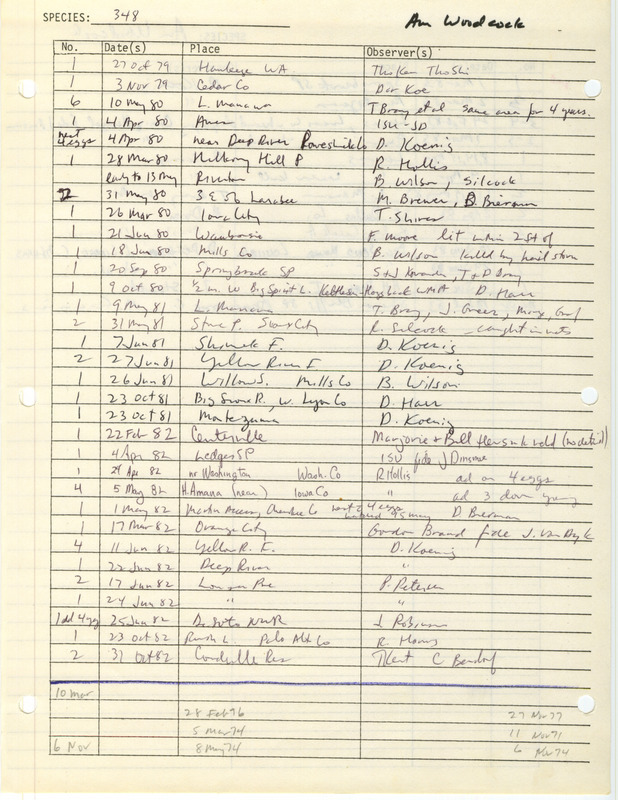 SPECIES: 348 Am Woodcock
No. Date(s) Place Observer(s)
1 27 Oct 79 Hawkeye WA
1 3 Nov 79 Cedar Co Dar Koe
6 10 May 80 L. Manawa T Bray et al same area for 4 years.
1 4 Apr 80 Ames ISU-JD
nest 4 eggs 4 Apr 80 near Deep River Poweshiek Co D. Koenig
1 28 Mar 80 Hill P R Hollis
early to 13 May Riverton B. Wilson, Silcock
2 31 May 80 3 E 56 Larabee M. Brewer, D. Bierman
1 26 Mar 80 Iowa City T. Shires
1 21 Jun 80 Waubonsie F. Moore lit within 25 ft of
1 18 Jun 80 Mills Co B. Wilson killed by hail storm
1 20 Sep 80 Springbrook SP
1 9 Oct 80 1/2 m. W Big Spirit L. Kettleson-Hogsback WMA D. Harr
1 9 May 81 L. Manawa T. Bray, J. Green,
2 31 May 81 Stone P. Sioux City R. Silcock caught in nets
1 7 Jun 81 Shimek F. D. Koenig
2 27 Jun 81 Yellow River F D. Koenig
1 26 Jun 81 Willow S. Mills Co B. Wilson
1 23 Oct 81 Big Sioux R., W. Lyon Co D. Harr
1 23 Oct 81 Montezuma D. Koenig
1 22 Feb 82 Centerville Marjorie & Bill (no detail)
1 4 Apr 82 Ledges SP ISU fide J Dinsmore
1 29 Apr 82 nr Washington Wash. Co R Hollis ad on 4 eggs
4 5 May 82 H. Amana (near) Iowa Co " ad 3 down young
1 1 May 82 Martin Access, Cherokee Co nest 4 eggs hatched 5 May D Bierman
1 17 Mar 82 Orange City Gordon Brand fide J. Van Dyk
4 11 Jun 82 Yellow R. F. D. Koenig
1 22 Jun 82 Deep River "
2 17 Jun 82 P. Petersen
1 24 Jun 82 " "
1 ad 4 yg 25 Jun 82 De Soto NWR J Robinson
1 23 Oct 82 Rush L. Palo Alto Co R Harms
2 31 Oct 82 Coralville Res T Kent C Bendorf
10 mar
28 Feb 76 27 Nov 77
5 Mar 74 11 Nov 71
6 Nov 8 May 74 6 Nov 74